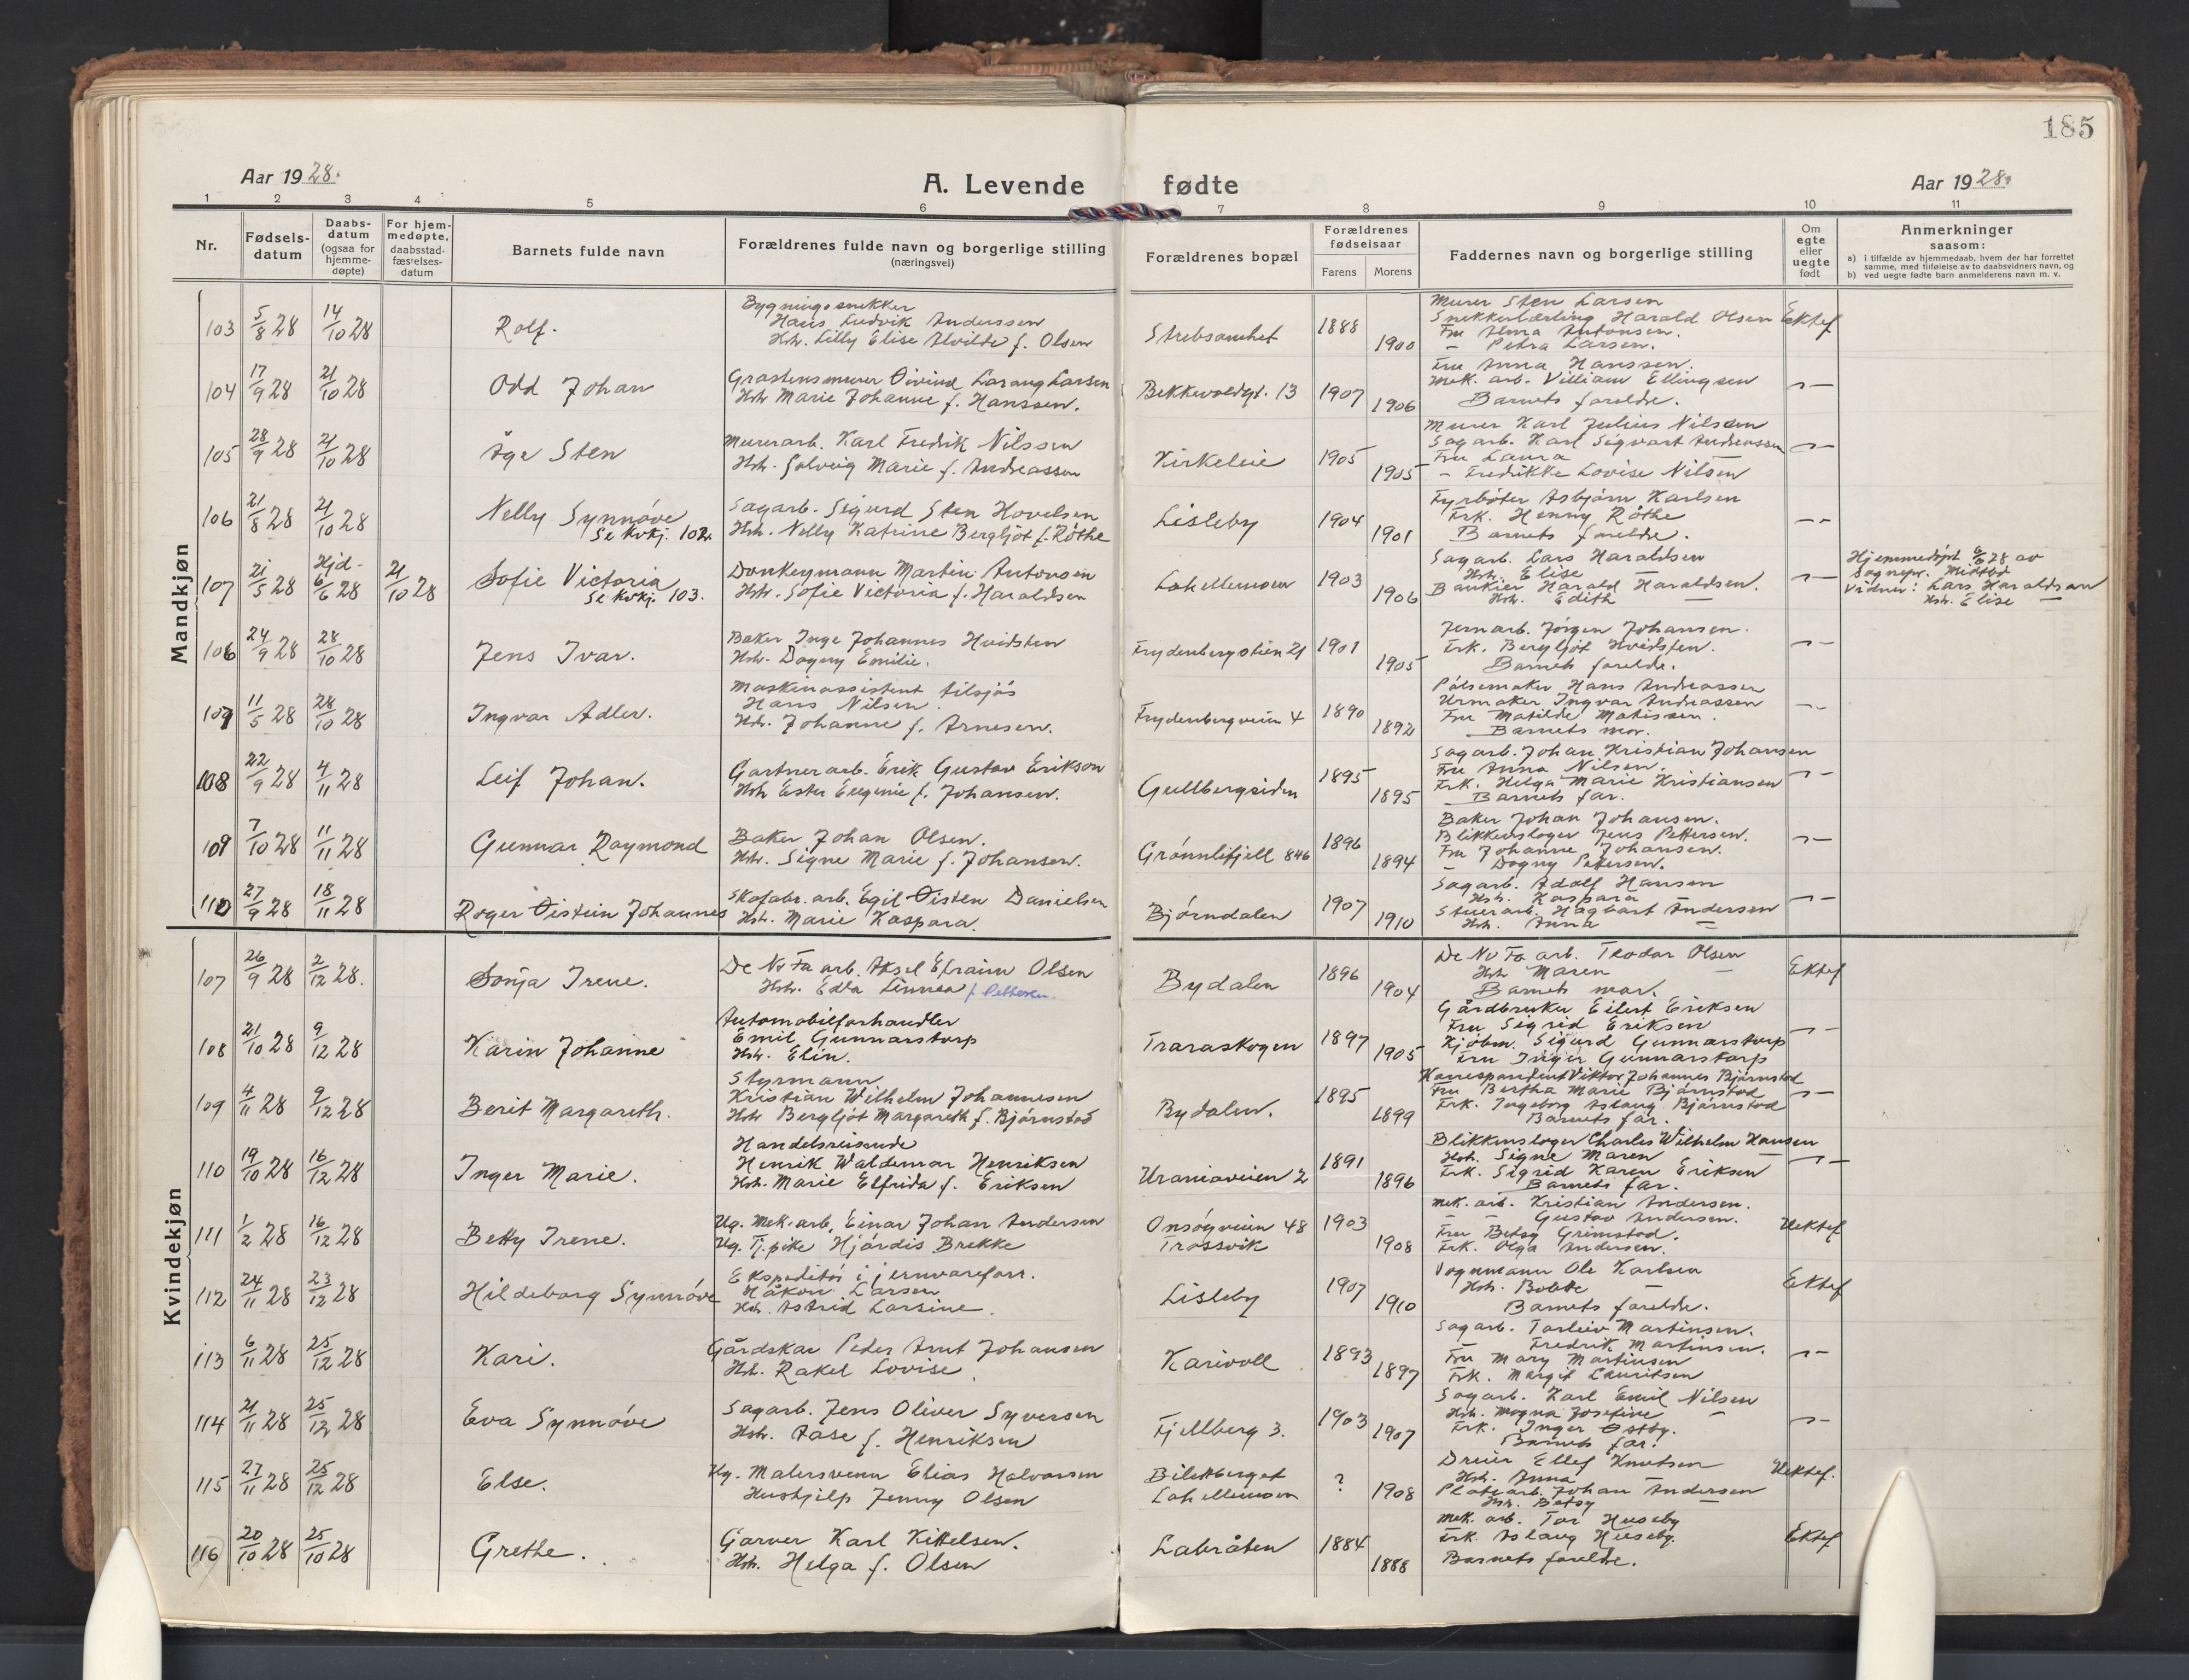 185
Aar 1928.
A. Levende fødte
Aar 1928.
1 2 3 4 5 6 7 8 9 10 11
Nr.
Fødsels-datum
Daabs-datum (ogsaa for hjemme-døpte)
For hjem-medøpte, daabsstad-fæstelses-datum
Barnets fulde navn
Forældrenes fulde navn og borgerlige stilling (næringsvei)
Forældrenes bopæl
Forældrenes fødselsaar
Farens Morens
Faddernes navn og borgerlige stilling
Om egte eller uegte født
Anmerkninger saasom:
a) i tilfælde av hjemmedaab, hvem der har forrettet samme, med tilføielse av to daabsvidners navn, og
b) ved uegte fødte barn anmelderens navn m. v.
Mandkjøn
103 5/8 28 14/10 28 Rolf.
Bygningssnekker
Hans Ludvik Anderssen
Hst. Lilly Elise Alvilde f. Olsen
Strebsomhet 1888 1900
Murer Sten Larsen
Snekkerlærling Harald Olsen
Fru Alma Antonsen.
— Petra Larsen.
Ektef
104 17/9 28 21/10 28 Odd Johan
Grastensmurer Öivind Laraug Larsen
Hst. Marie Johanne f. Hanssen.
Bekkevoldgt. 13 1907 1906
Fru Anna Hanssen.
Mek. arb. Villiam Ellingsen
Barnets forelde.
105 28/9 28 21/10 28 Åge Sten
Murerarb. Karl Fredrik Nilssen
Hst. Solveig Marie f. Andreassen
Kirkeleie 1905 1905
Murer Karl Julius Nilsen
Sagarb. Karl Sigvart Andreassen
Fru Laura —
— Fredrikke Lovise Nilsen
106 21/8 28 21/10 28 Nelly Synnöve
Se Kvkj. 102.
Sagarb. Sigurd Sten Hovelsen
Hst. Nelly Katrine Bergljót f. Röthe
Lisleby 1904 1901
Fyrböter Asbjörn Karlsen
Frk. Henny Röthe
Barnets forelde.
107 21/5 28 Hjd. 6/6 28 21/10 28 Sofie Victoria
Se Kvkj. 103.
Donkeymann Martin Antonsen
Hst. Sofie Victoria f. Haraldsen
Lahellemoen 1903 1906
Sagarb. Lars Haraldsen
Hst. Elise —
Harald Haraldsen.
Hst. Edith —
Hjemmedöpt 6/6 28 av
Sognepr.
Vidner: Lars Haraldsen
Hst. Elise —
106 24/9 28 28/10 28 Jens Ivar.
Baker Inge Johannes Hvidsten
Hst. Dagny Emilie.
Frydenbergstien 21 1901 1905
Jernarb. Jörgen Johansen.
Frk. Bergljót Hvidsten.
Barnets forelde.
107 11/5 28 28/10 28 Ingvar Adler.
Maskinassistent tilsjös
Hans Nilsen.
Hst. Johanne f. Arnesen.
Frydenbergveien 4 1890 1892
Pölsemaker Hans Andreassen
Urmaker Ingvar Andreassen
Fru Matilde Matissen.
Barnets mor.
108 22/9 28 4/11 28 Leif Johan.
Gartnerarb. Erik Gustav Erikson
Hst. Ester Eugenie f. Johansen.
Gullbergsiden 1895 1895
Sagarb. Johan Kristian Johansen
Fru Anna Nilsen.
Frk. Helga Marie Kristiansen
Barnets far.
109 7/10 28 11/11 28 Gunnar Raymond
Baker Johan Olsen.
Hst. Signe Marie f. Johansen.
Grønnlifjell 846 1896 1894
Baker Johan Johansen.
Blikkenslager Jens Pettersen.
Fru Johanne Johansen.
— Dagny Pettersen.
110 27/9 28 18/11 28 Roger Öistein Johannes
Skofabr. arb. Egil Öisten Danielsen
Hst. Marie Kaspara.
Bjørndalen 1907 1910
Sagarb. Adolf Hansen
Hst. Kaspara —
Stuerarb. Hagbart Andersen
Hst. Anna —
Kvindekjøn
107 26/9 28 2/12 28. Sonja Irene.
De No Fa arb. Aksel Efraim Olsen
Hst. Edla Linnea f. Pettersen.
Bydalen 1896 1904
De No Fa arb. Teodor Olsen
Hst. Maren —
Barnets mor.
Ektef
108 21/10 28 9/12 28 Karin Johanne
Automobilforhandler
Emil Gunnarstorp
Hst. Elin.
Traraskogen 1897 1905
Gårdbruker Eilert Eriksen
Fru Sigrid Eriksen
Kjöbm. Sigurd Gunnarstorp
Fru Inger Gunnarstorp
109 4/11 28 9/12 28 Berit Margareth.
Styrmann
Kristian Wilhelm Johannesen
Hst. Bergljót Margareth f. Björnstad
Bydalen. 1895 1899
Korrespondent Viktor Johannes Björnstad
Fru Bertha Marie Björnstad
Frk. Ingeborg Aslaug Björnstad
Barnets far.
110 19/10 28 16/12 28 Inger Marie.
Handelsreisende
Henrik Waldemar Henriksen
Hst. Marie Elfrida f. Eriksen
Uraniaveien 2 1891 1896
Blikkenslager Charles Wilhelm Hansen
Hst. Signe Maren —
Frk. Sigrid Karen Eriksen
Barnets far.
111 1/2 28 16/12 28 Betty Irene.
Ug. Mek. arb. Einar Johan Andersen
Ug. Tj. pike Hjördis Brekke
Onsöyveien 48
Trossvik
1903 1908
Mek. arb. Kristian Andersen.
— Gustav Andersen.
Fru Betsy Grimstad.
Frk. Olga Andersen.
Uektef
112 24/11 28 23/12 28 Hildeborg Synnöve
Ekspeditör i jernvareforr.
Håkon Larsen
Hst. Astrid Larsine.
Lisleby 1907 1910
Vognmann Ole Karlsen
Hst. Bolette —
Barnets forelde.
Ektef
113 6/11 28 25/12 28 Kari.
Gårdskar Peder Arnt Johansen
Hst. Rakel Lovise.
Karivoll 1893 1897
Sagarb. Torleiv Martinsen.
— Fredrik Martinsen.
Fru Mary Martinsen
Frk. Margit Lauritsen
114 21/11 28 25/12 28 Eva Synnöve
Sagarb. Jens Oliver Syversen
Hst. Aase f. Henriksen
Fjellberg 3. 1903 1907
Sagarb. Karl Emil Nilsen
Hst. Magna Josefine —
Frk. Inger Østby.
Barnets far.
115 27/11 28 25/12 28 Else.
Ug. Malersvenn Elias Halvorsen
Hushjelp Jenny Olsen
Bilekberget
Lahellemoen
? 1908
Dreier Ellef Knutsen
Hst. Anna —
Platearb. Johan Andersen
Hst. Betsy —
Uektef.
116 20/10 28 25/10 28 Grethe.
Garver Karl Kittelsen.
Hst. Helga f. Olsen
Labråten 1884 1888
Mek. arb. Tor Huseby
Frk. Aslaug Huseby.
Barnets forelde.
Ektef